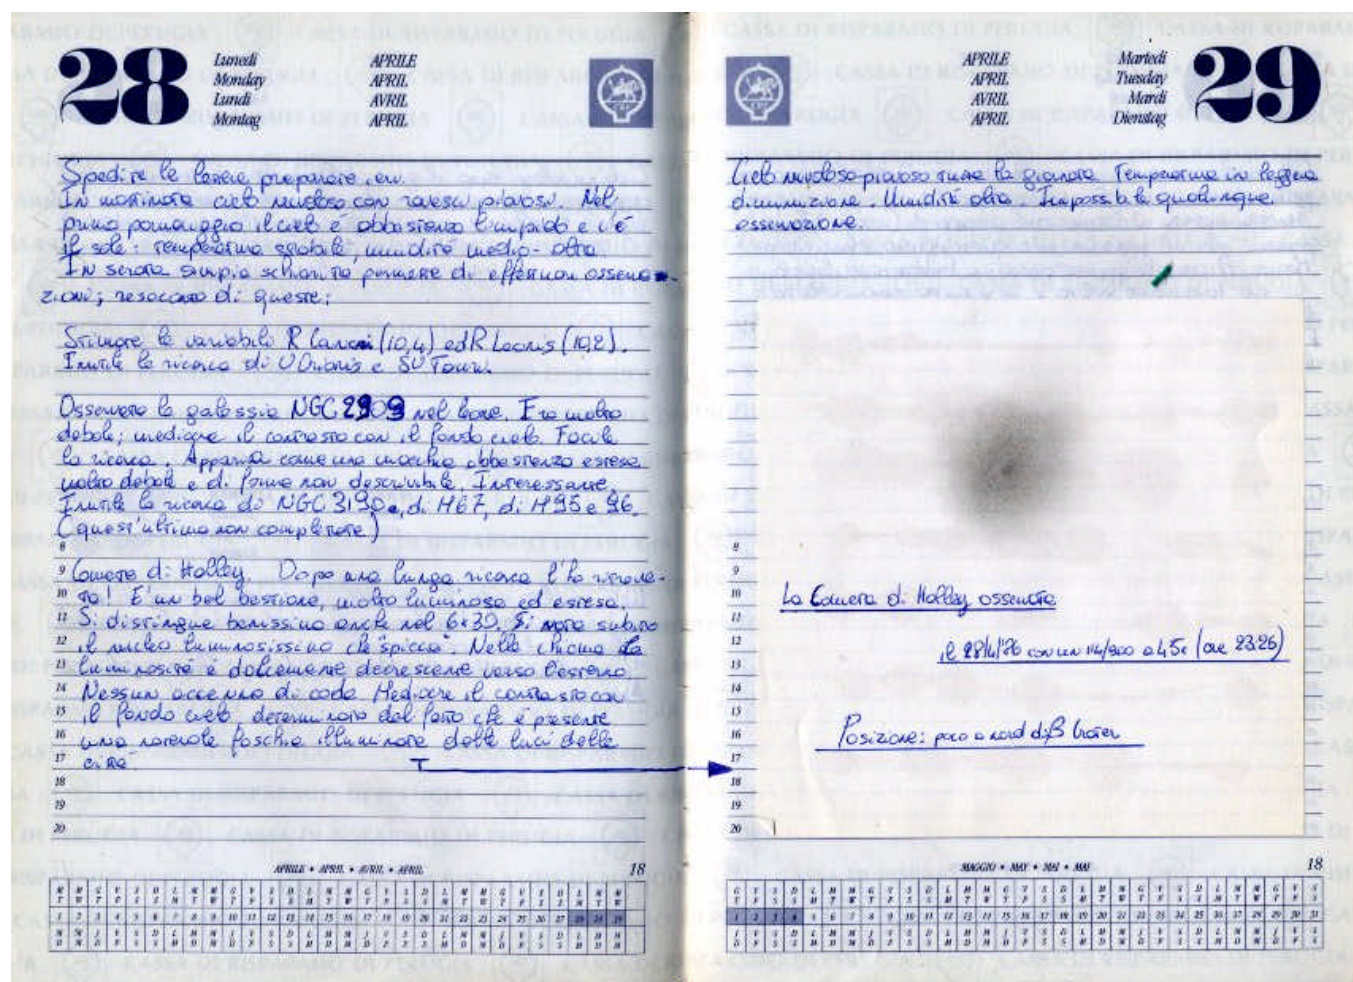 28
Lunedì
Monday
Lundi
Montag
APRILE
APRIL
AVRIL
APRIL
Spedite le lettere preparate, ecc.
In mattinata cielo nuvoloso con rovesci piovosi. Nel
primo pomeriggio il cielo è abbastanza limpido e c'è
il sole: temperatura stabile, umidità medio-alta.
In serata ampia schiarita permette di effettuar osserva-
zioni; resoconto di queste:
Stimate le variabili R Cancri (10,4) ed R Leonis (10,2).
Inutile la ricerca di U Orionis e SU Tauri.
Osservata la galassia NGC 2909 nel leone. Era molto
debole; mediocre il contrasto con il fondo cielo. Facile
la ricerca. Appariva come una macchia abbastanza estesa
molto debole e di forma non descrivibile. Interessante.
Inutile la ricerca di NGC 3190, di M67, di M95 e 96.
(quest'ultima non completata)
8
9 Cometa di Halley. Dopo una lunga ricerca l'ho trova-
10 ta! E' un bel bestione, molto luminosa ed estesa.
11 Si distingue benissimo anche nel 6x30. Si nota subito
12 il nucleo luminosissimo che spicca. Nella chioma la
13 luminosità è dolcemente decrescente verso l'esterno.
14 Nessun accenno di coda. Mediocre il contrasto con
15 il fondo cielo, determinato dal fatto che è presente
16 una notevole foschia illuminata dalle luci della
17 città.
18
19
20
APRILE • APRIL • AVRIL • APRIL
18
APRILE
APRIL
AVRIL
APRIL
Martedì
Tuesday
Mardi
Dienstag
29
Cielo nuvoloso-piovoso tutta la giornata. Temperatura in leggera
diminuzione. Umidità alta. Impossibile qualunque
osservazione.
8
9
10
La Cometa di Halley osservata
11
12
il 28/4/86 con un 114/900 a 45x (ore 23:26)
13
14
15
16
Posizione: poco a nord di β Crater
17
18
19
20
MAGGIO • MAY • MAI • MAI
18